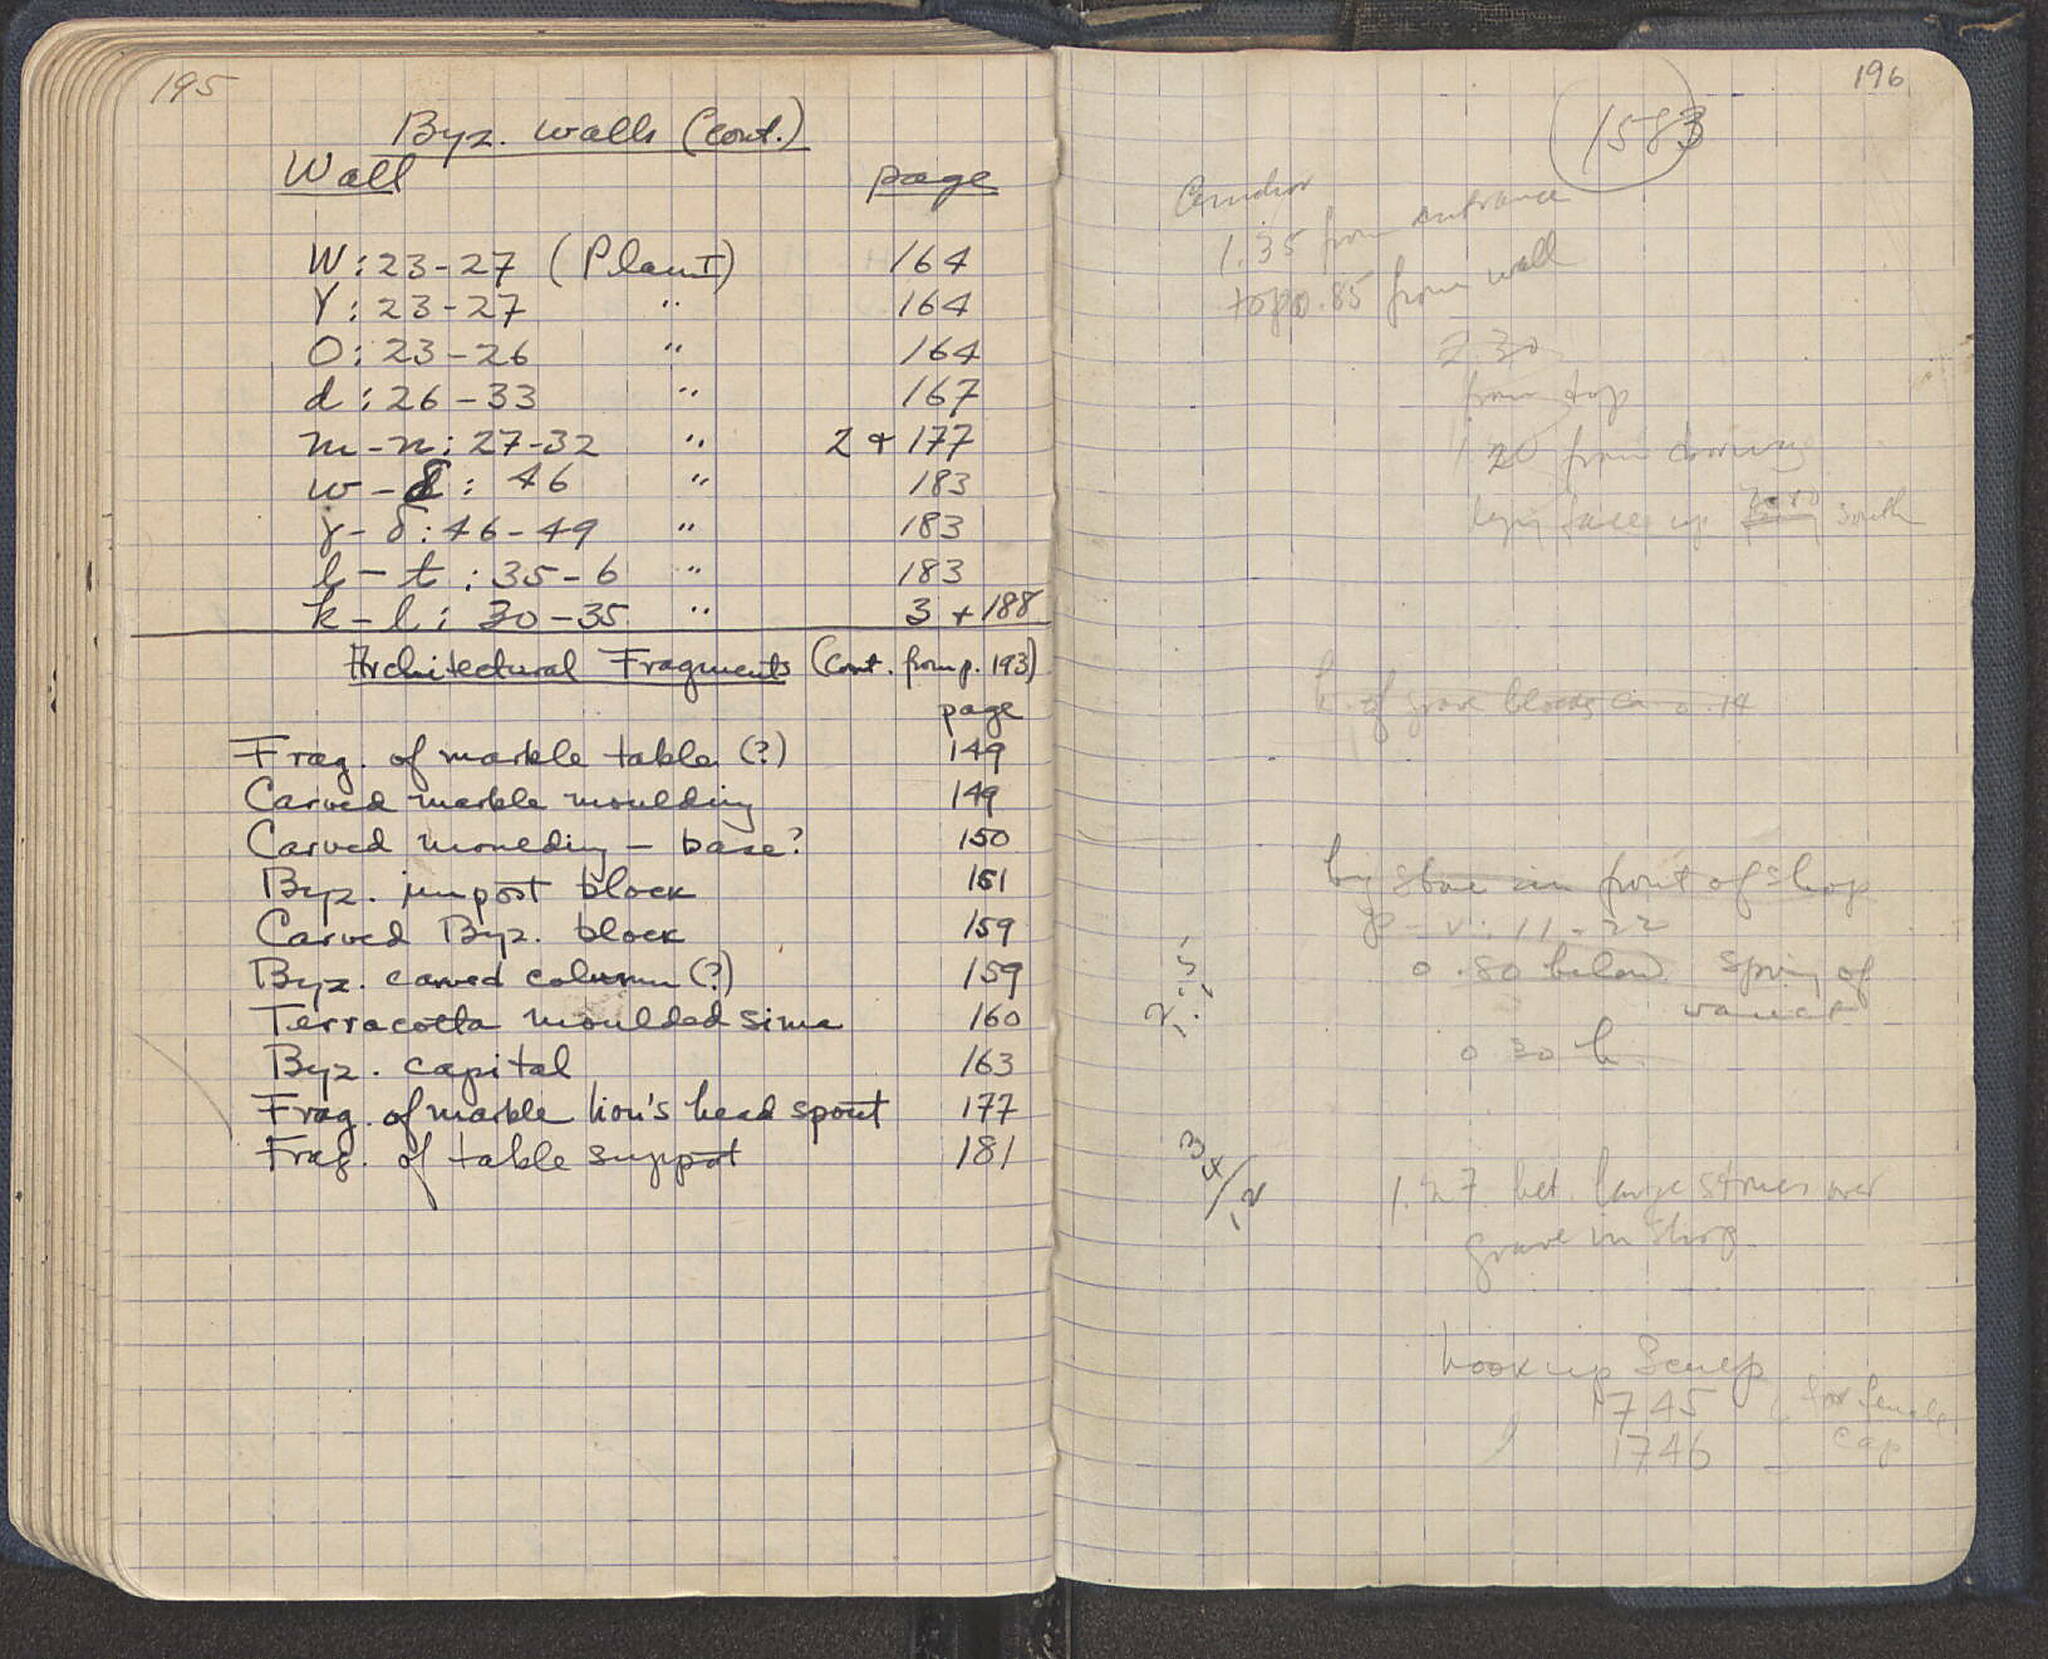 195
Byz. walls (cont.)
Wall page
W: 23-27 (Plan I) 164
Y: 23-27 " 164
O: 23-26 " 164
d: 26-33 " 167
m-n: 27-32 " 2 + 177
w-δ: 46 " 183
γ-δ: 46-49 " 183
t: 35-6 " 183
k-l: 30-35 " 3 + 188
Architectural Fragments (cont. from p. 193)
page
Frag. of marble table (?) 149
Carved marble moulding 149
Carved moulding - base? 150
Byz. impost block 151
Carved Byz. block 159
Byz. carved column (?) 159
Terracotta moulded sima 160
Byz. capital 163
Frag. of marble lion's head spout 177
Frag. of table support 181
196
1583
Corridor
1.35 from entrance
top 0.85 from wall
2.30
from top
1 20 from doorway
face south
h. of grave blocks ca 0.14
big stone in front of shop
11-22
0.80 below spring of
0 30 h.
34/12
1.27 bet. large stones over
grave in shop
Look up Sculp
1745 for female
1746 cap